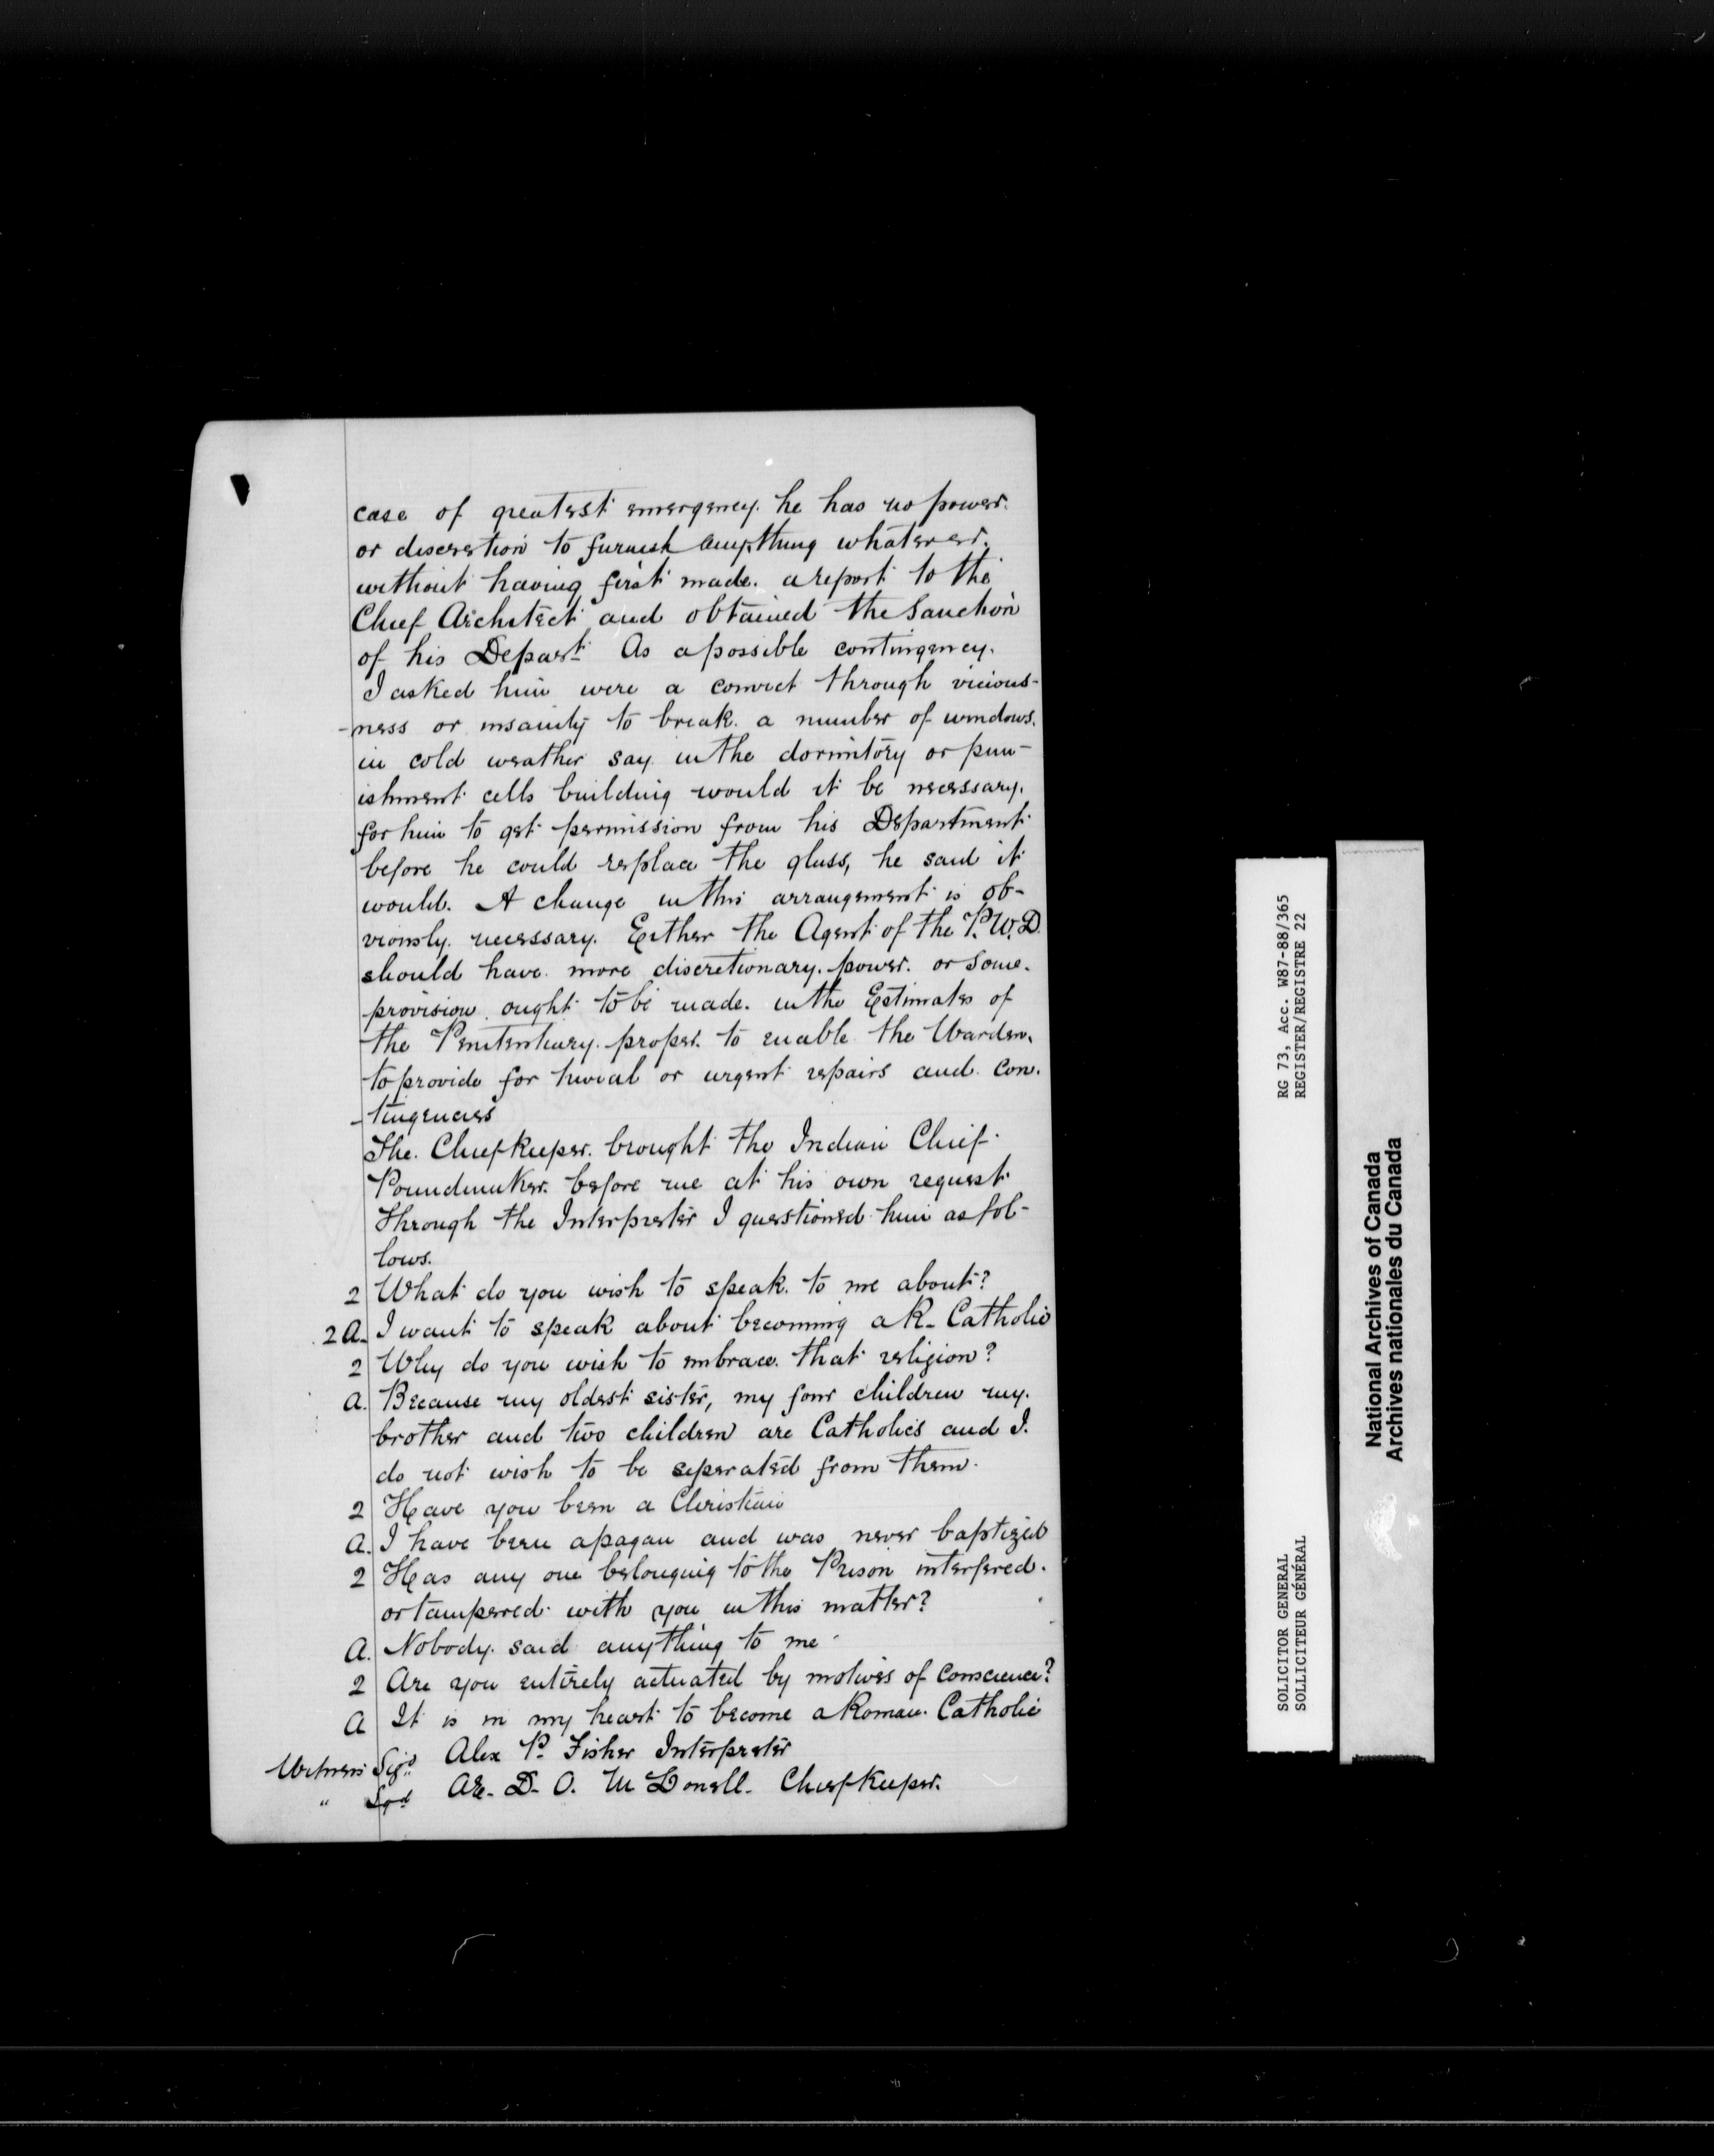 case of greatest emergency. he has no power.
or discretion to furnish anything whatever.
without having first made. a report to the
Chief Architect and obtained the Sanction
of his Depart. As a possible contingency.
I asked him were a convict through vicious-
-ness or insanity to break. a number of windows.
in cold weather say in the dormitory or pun-
ishment cells building would it be necessary.
for him to get permission from his Department
before he could replace the glass, he said it
would. A change in this arrangement is ob-
viously. necessary. Either the Agent of the P.W.D.
should have more discretionary. power. or some.
provision ought to be made. in the Estimates of
the Penitentiary. proper. to enable the Warden.
to provide for trivial or urgent repairs and con.
-tingencies
The. Chief Keeper. brought the Indian Chief
Poundmaker. before me at his own request
Through the Interpreter I questioned him as fol-
lows.
2 What do you wish to speak. to me about?
2 A. I want to speak about becoming a R. Catholic
2 Why do you wish to embrace. that religion?
A. Because my oldest sister, my four children my.
brother and two children are Catholics and I.
do not wish to be seperated from them.
2 Have you been a Christian
A. I have been a pagan and was never baptized
2 Has any one belonging to the Prison interfered.
or tamperred with you in this matter?
A. Nobody. said anything to me
2 Are you entirely actuated by motives of Conscience?
A It is in my heart to become a Roman. Catholic
Witness Sigd Alex P. Fisher Interpreter
" Sgd Æ. D. O. McDonell. Chief Keeper.
RG 73, Acc. W87-88/365
REGISTER/REGISTRE 22
SOLICITOR GENERAL
SOLLICITEUR GÉNÉRAL
National Archives of Canada
Archives nationales du Canada